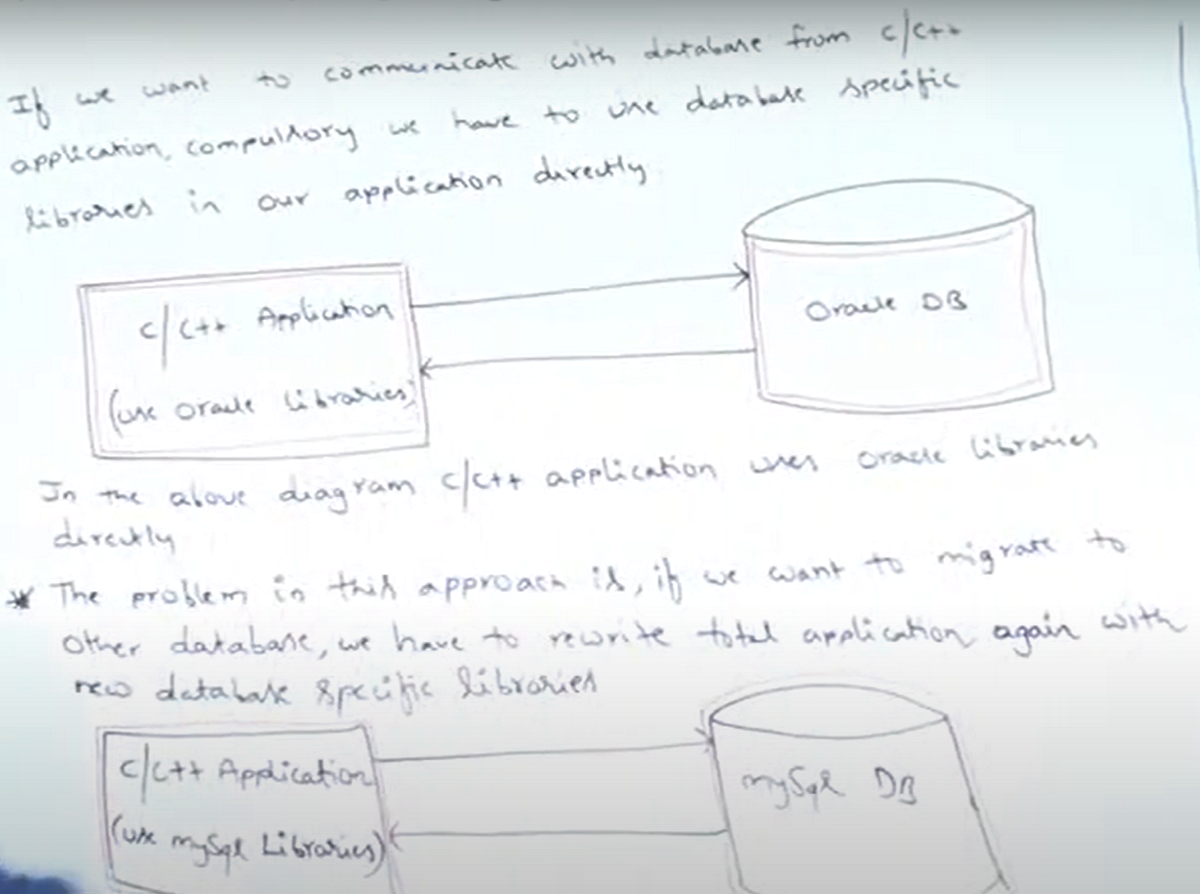 If we want to communicate with database from c/c++
application, compulsory we have to use database specific
libraries in our application directly.
c/c++ Application
Oracle DB
(use oracle libraries)
In the above diagram c/c++ application uses oracle libraries
directly
* The problem in this approach is, if we want to migrate to
other database, we have to rewrite total application again with
new database specific libraries
c/c++ Application
mySql DB
(use mySql Libraries)